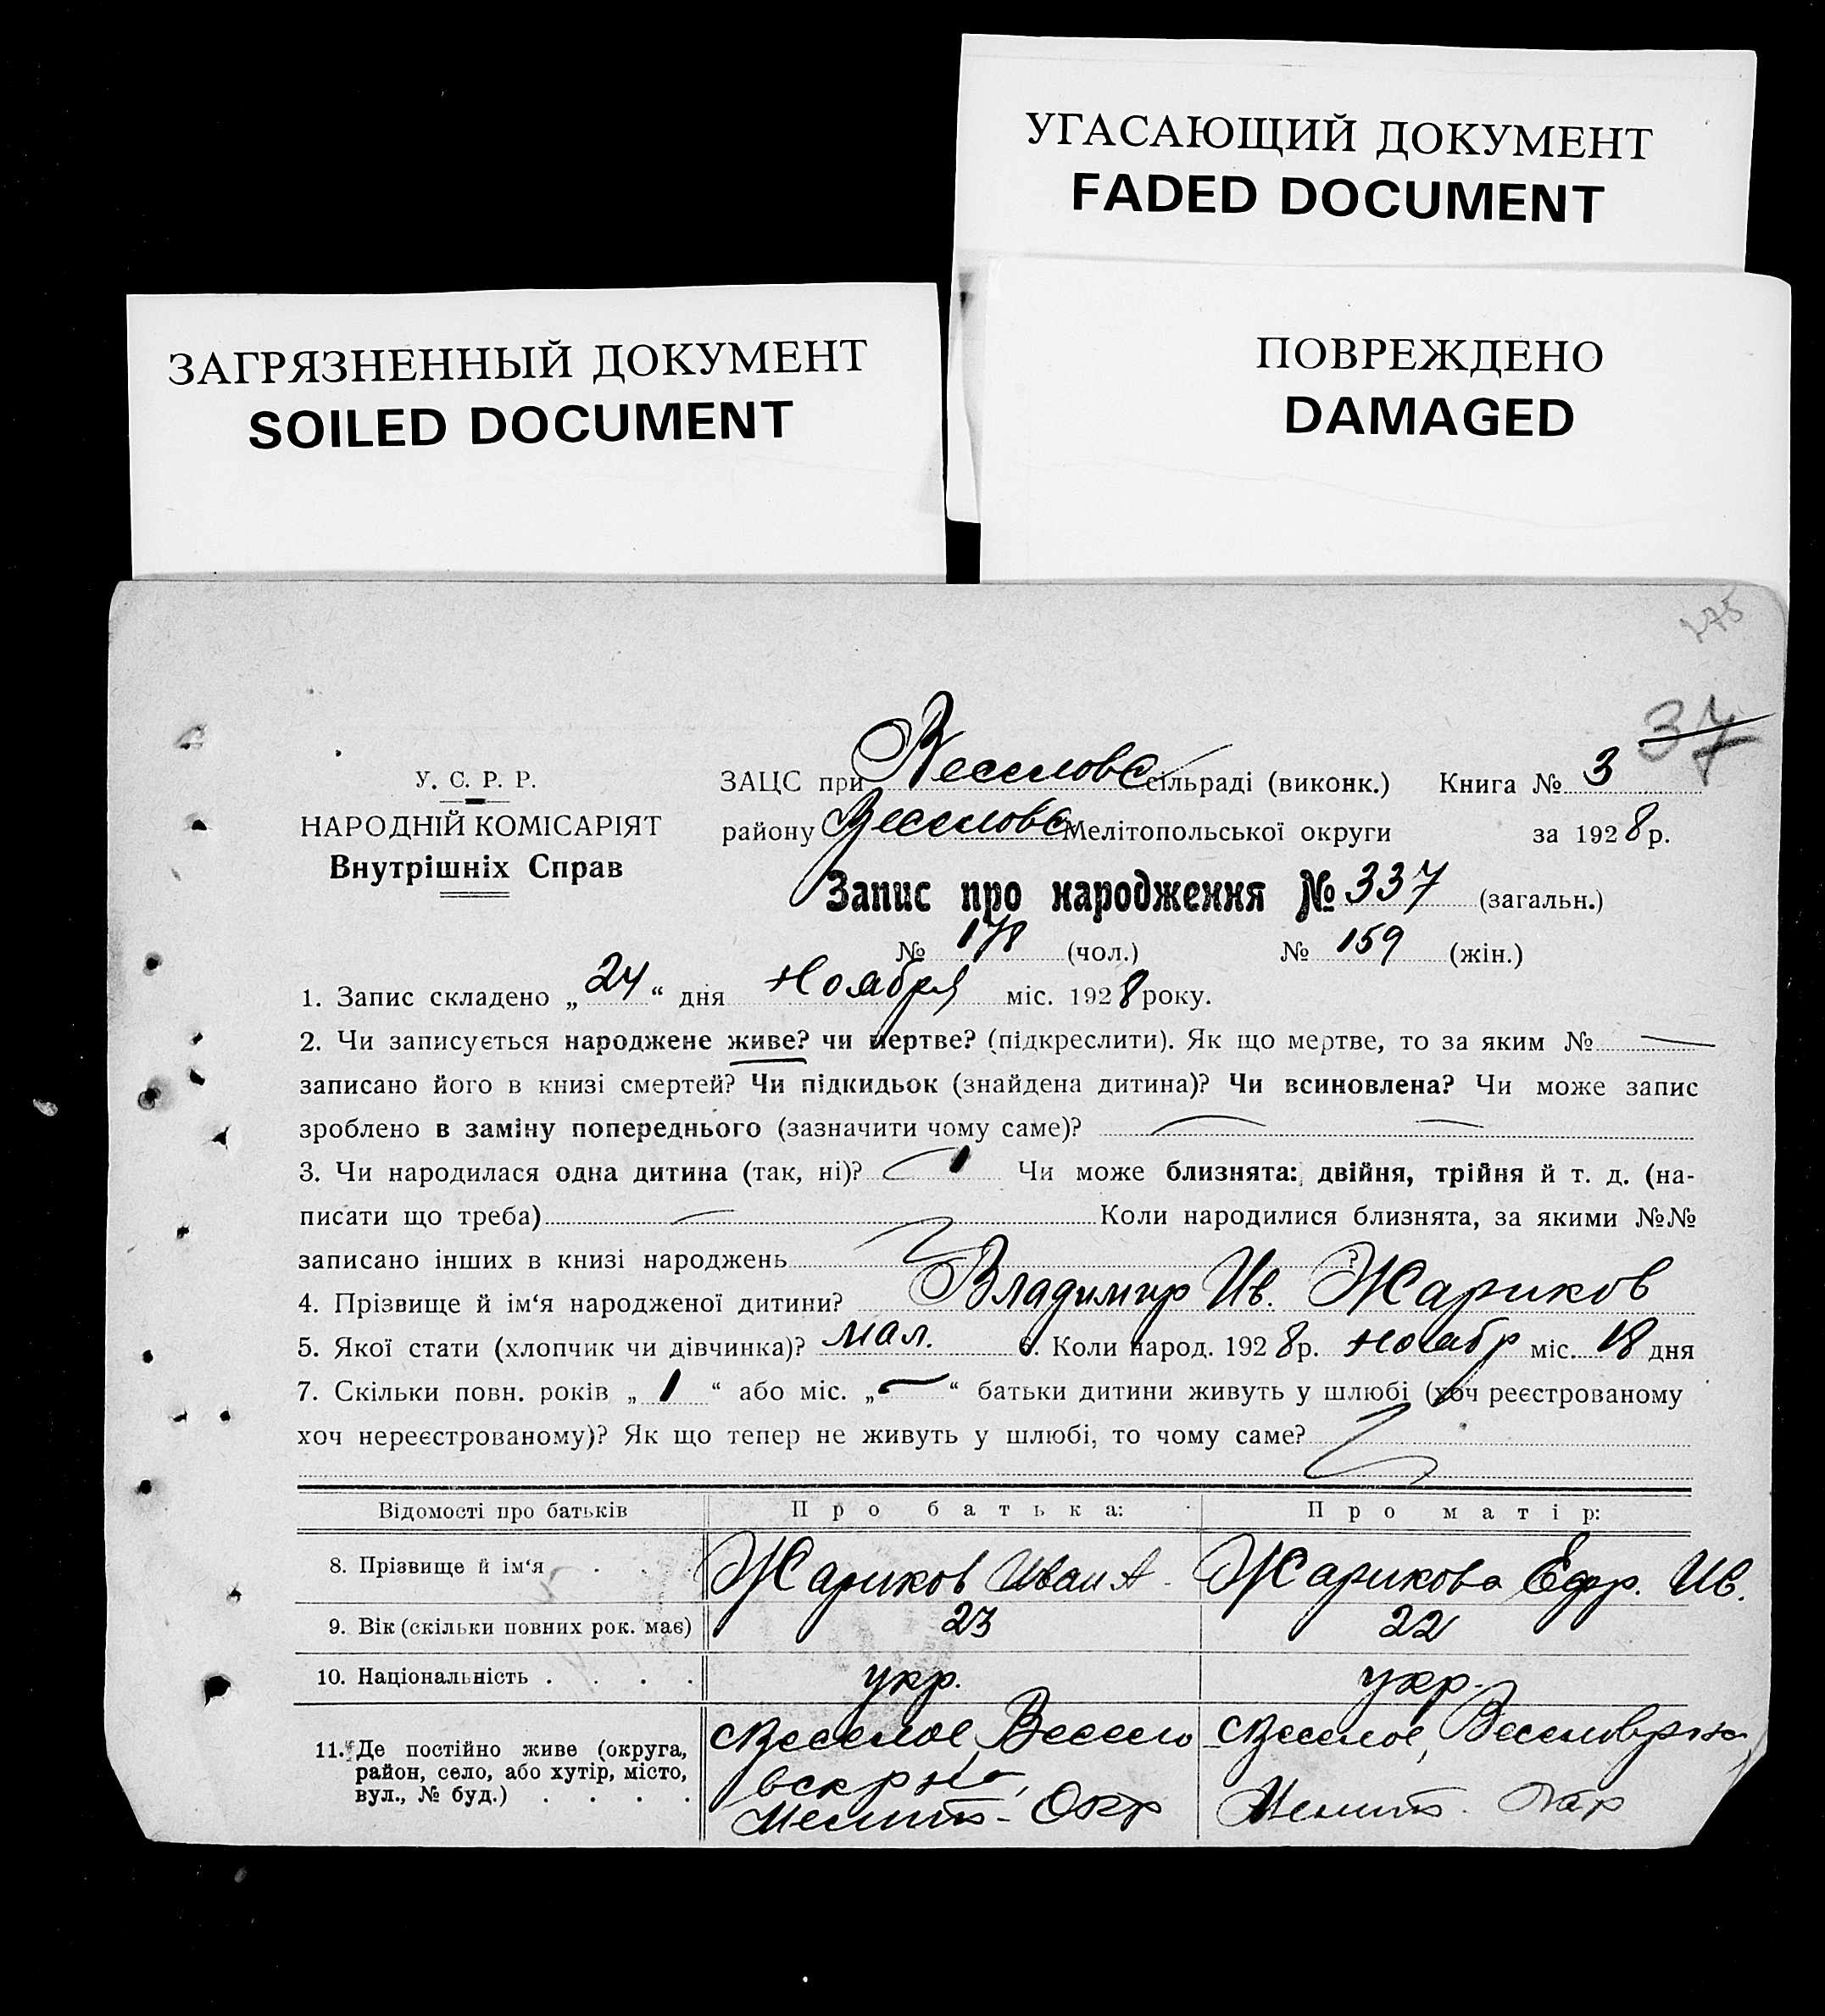 УГАСАЮЩИЙ ДОКУМЕНТ
FADED DOCUMENT
ЗАГРЯЗНЕННЫЙ ДОКУМЕНТ
SOILED DOCUMENT
ПОВРЕЖДЕНО
DAMAGED
275
37
У. С. Р. Р.
НАРОДНІЙ КОМІСАРІЯТ
Внутрішніх Справ
ЗАЦС при Веселовс сільраді (виконк.) Книга № 3
району Веселовс Мелітопольської округи за 1928 р.
Запис про народження № 337 (загальн.)
№ 178 (чол.) № 159 (жін.)
1. Запис складено „ 24 “ дня Ноября міс. 1928 року.
2. Чи записується народжене живе? чи мертве? (підкреслити). Як що мертве, то за яким № —
записано його в книзі смертей? Чи підкидьок (знайдена дитина)? Чи всиновлена? Чи може запис
зроблено в заміну попереднього (зазначити чому саме)? — —
3. Чи народилася одна дитина (так, ні)? 1 Чи може близнята: двійня, трійня й т. д. (на-
писати що треба) — Коли народилися близнята, за якими №№
записано інших в книзі народжень
4. Прізвище й ім‘я народженої дитини? Владимир Ив. Жариков
5. Якої стати (хлопчик чи дівчинка)? мал. 6. Коли народ. 1928 р. Ноябр міс. 18 дня
7. Скільки повн. років „ 1 “ або міс. „ — “ батьки дитини живуть у шлюбі (хоч реєстрованому
хоч нереєстрованому)? Як що тепер не живуть у шлюбі, то чому саме?
Відомості про батьків Про батька: Про матір:
8. Прізвище й ім‘я . . . Жариков Иван А. Жарикова Ефр. Ив.
9. Вік (скільки повних рок. має) 23 22
10. Національність . . . . укр. укр.
11. Де постійно живе (округа, район, село, або хутір, місто, вул., № буд.) . . . .
с Веселое, Весело
вск р на,
Мелит- Окр
с Веселое, Веселов р на
Мелит. Окр